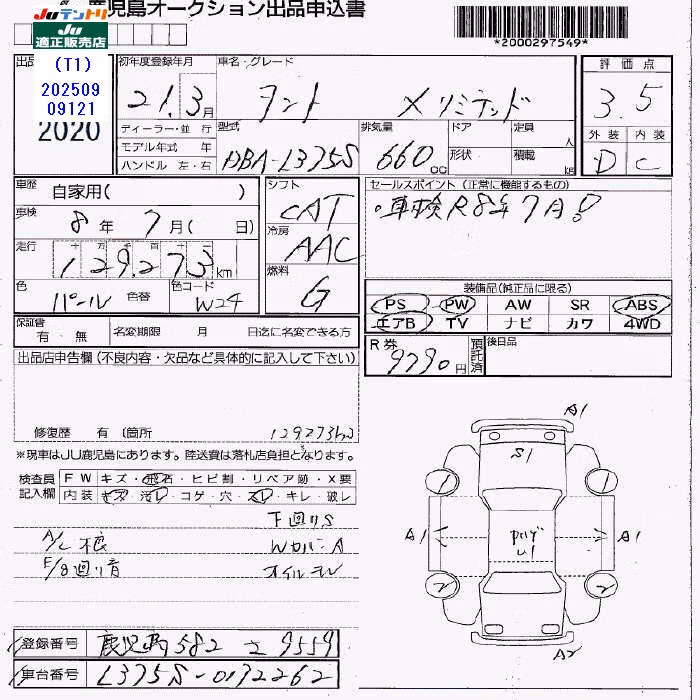 鹿児島オークション出品申込書
JUテントリ
JU適正販売店
*2000297549*
(T1)
202509
09121
2020
初年度登録年月
21.3月
車名・グレード
タント Xリミテッド
評価点
3.5
ディーラー・並 行
モデル年式 年
ハンドル 左・右
型式
DBA-L375S
排気量
660cc
ドア
形状
定員 人
積載 kg
外装 内装
D C
車歴
自家用( )
車検
8年 7月( 日)
走行
129,273km
色
パール
色替
色コード
W24
シフト
CAT
冷房
AAC
燃料
G
セールスポイント (正常に機能するもの)
車検R8年7月!
装備品(純正品に限る)
PS PW AW SR ABS
エアB TV ナビ カワ 4WD
保証書
有・無
名変期限 月 日迄に名変できる方
R券
9790円
預託済
後日品
出品店申告欄(不良内容・欠品など具体的に記入して下さい)
修復歴 有(箇所
129273km
※現車はJU鹿児島にあります。陸送費は落札店負担となります。
検査員記入欄
FW キズ・飛石・ヒビ割・リペア跡・X要
内装・キズ・汚レ・コゲ・穴・スレ・キレ・破レ
下回りS
A/C
WカバーA
オイル
A1
S1
1 1
A1 A1
A1
U1
2 2
A2
登録番号
鹿児島582 さ9559
車台番号
L375S-0192262